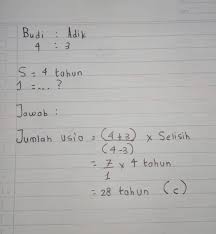 Budi : Adik
4 : 3
S = 4 tahun
J = .... ?
Jawab :
Jumlah usia = (4+3) x Selisih
(4-3)
= 7 x 4 tahun
1
= 28 tahun (c)